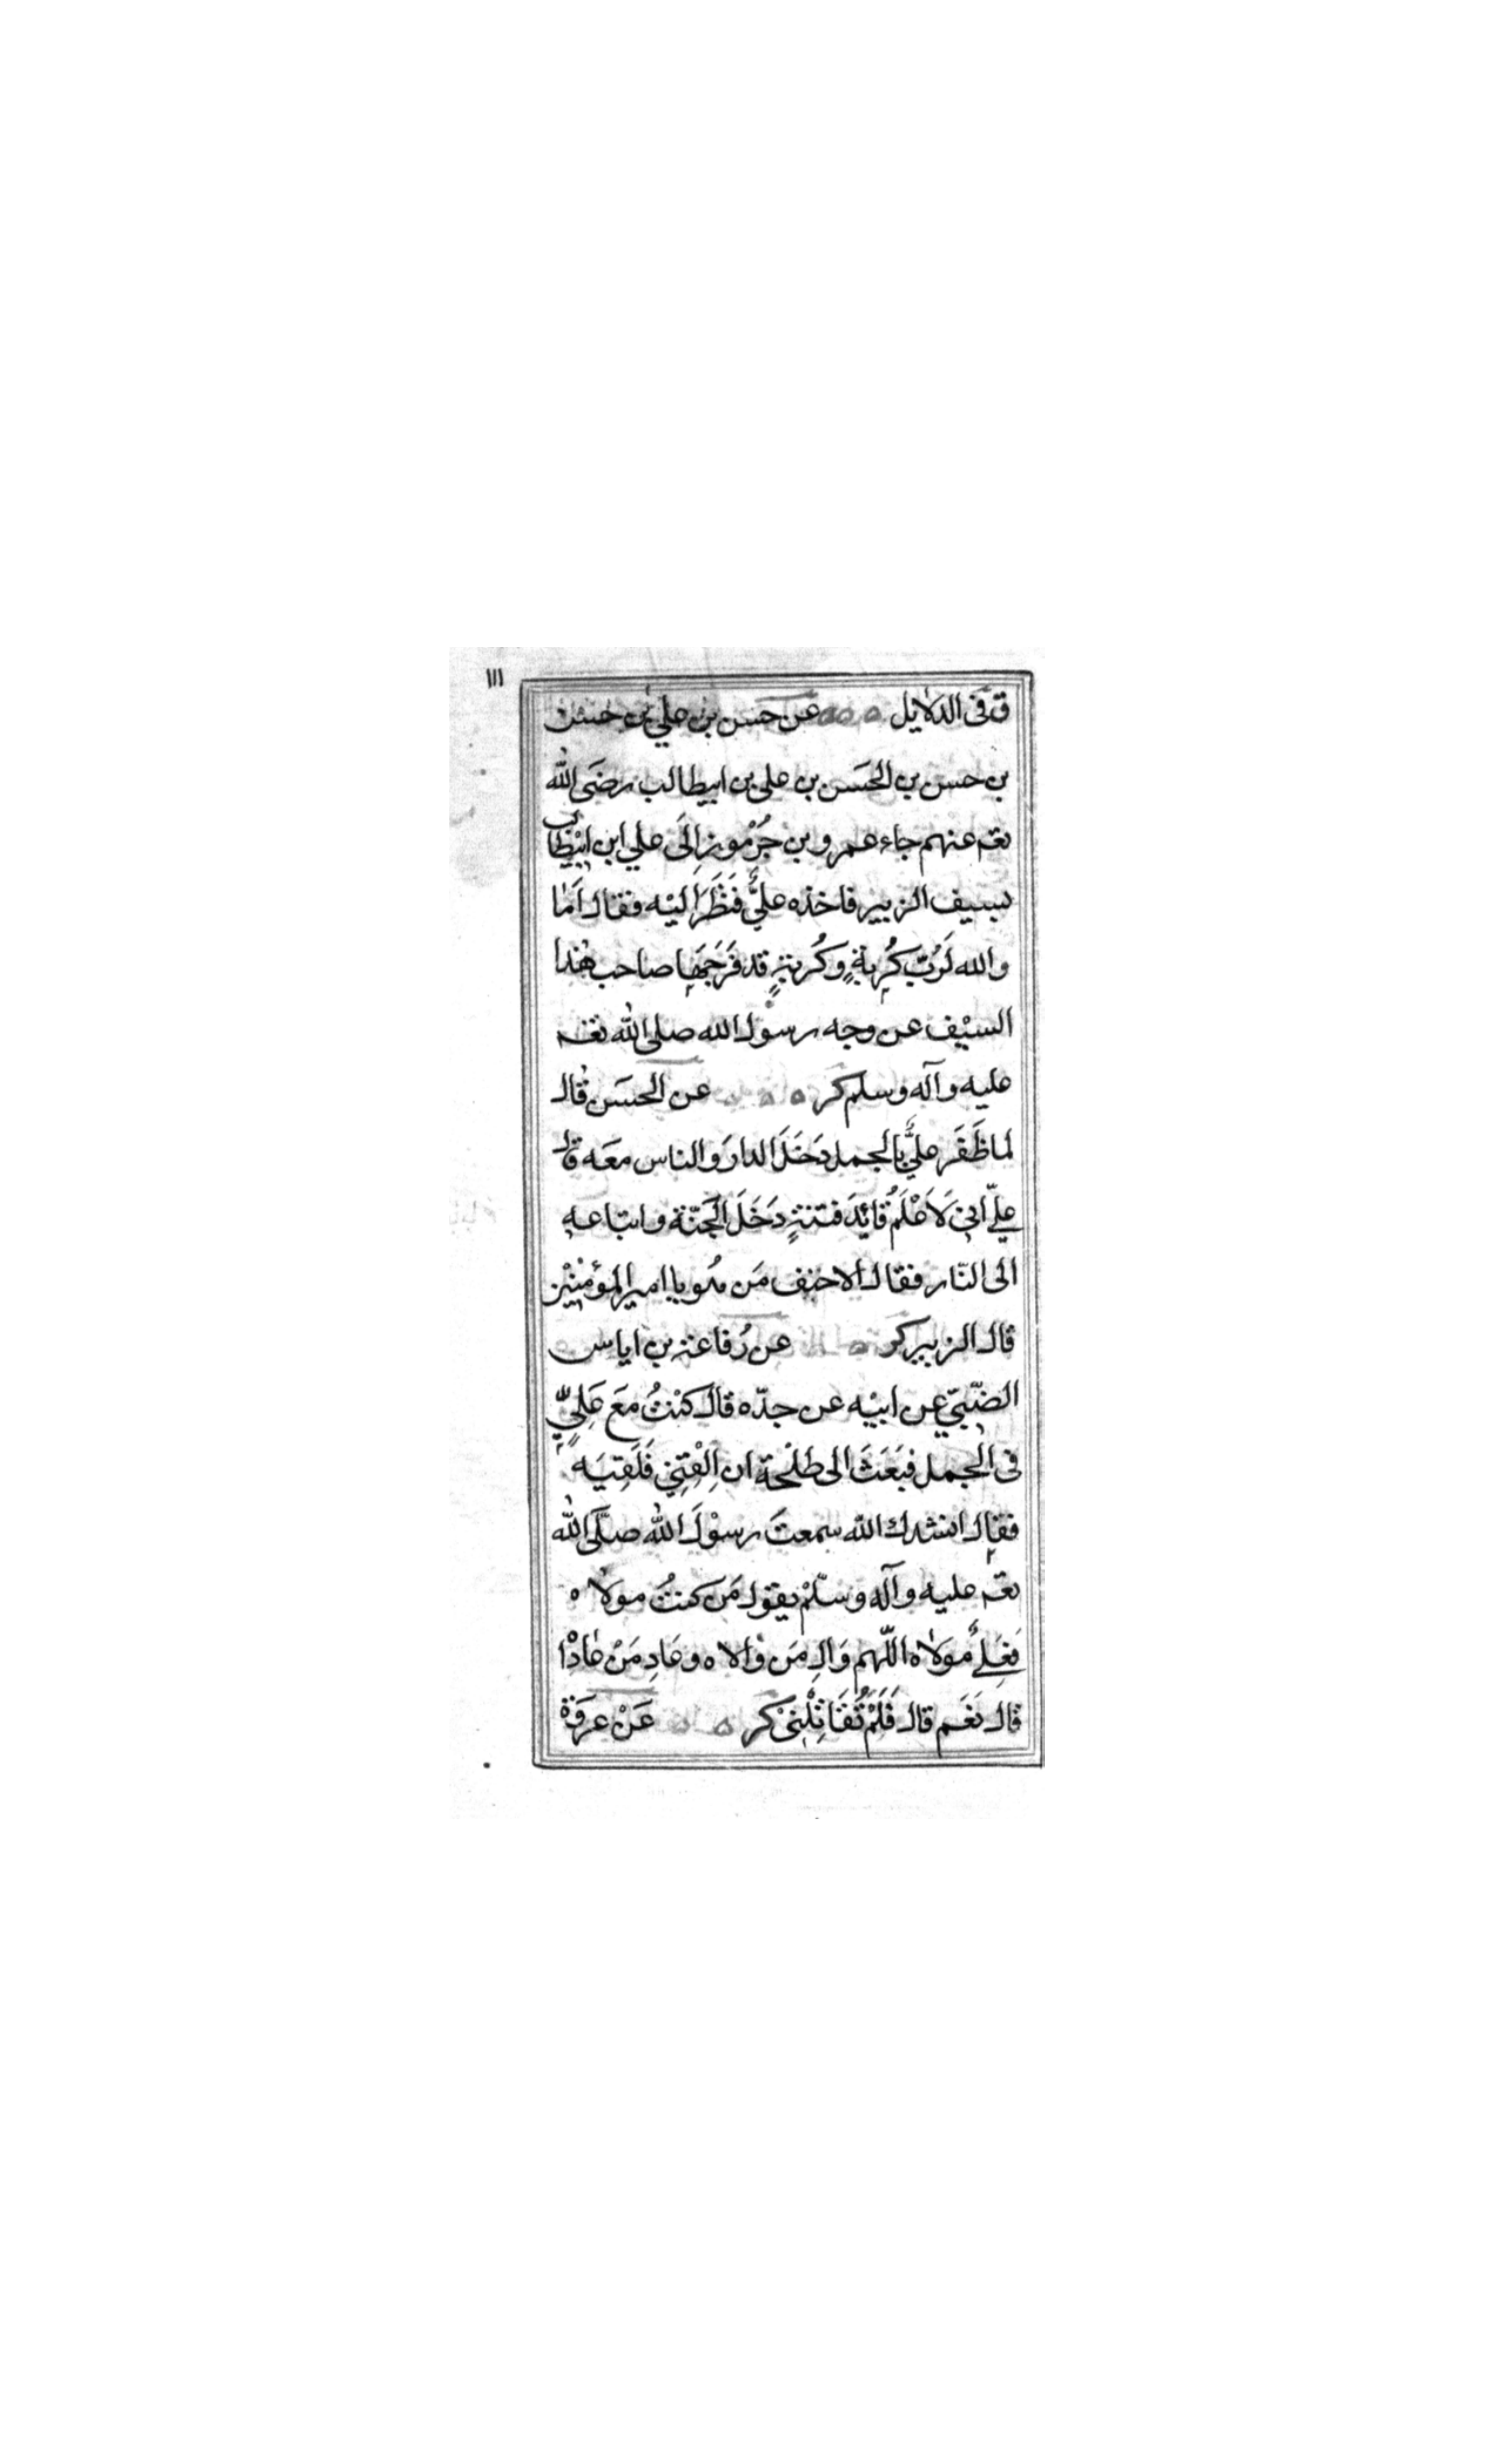 ١١١
ق فى الدلايل ٥ ٥٥ عن حسن بن علي بن حسن
بن حسن بن الحسَن بن على بن ابيطالب رضَى الله
تعـ عنهم جاء عمرو بن جُرْموزٍ اِلَى علي ابن ابيْطالب
بسيف الزبير فاخذه عليٌّ فَنَظَرَ اليْه فقال اَمَا
والله لَرُبّ كُرِبةٍ وكُربةٍ قد فَرَّجَهَا صاحب هٰذا
السيْف عن وجه رسوْل الله صلى الله تعـ
عليه وآله وسلم كر ٥ ٥ عن الحسَن قال
لما ظَفَر عليٌّ بالجمل دَخَلَ الدارَ والناس معَه قال
عليّ انى لَاَعْلَمُ قائِدَ فتنةٍ دَخَلَ الجَنّة واتباعه
الى النّار فقال الاحنف مَن هو يا امير المؤمنِيْن
قال الزبير كر ٥ عن رُفاعة بن اياس
الضّبّيّ عن ابيْه عن جدّه قال كنْتُ مَعَ عَلِيٍّ
فى الجمل فبَعَثَ الى طلْحة ان اِلْقَنِى فَلَقِيَه
فقال انشدك الله سمعتَ رسوْلَ الله صلَّى الله
تعـ عليه وآله وسلّمْ يقول مَن كنتُ مولاه
فعَلِيٌّ مَولاه اللّهم وَالِ مَن وَالاه وعَادِ مَنْ عَادَا
قال نَعَم قال فَلَمْ تُقَاتِلُنِىْ كر ٥ ٥ عَنْ عرفَة